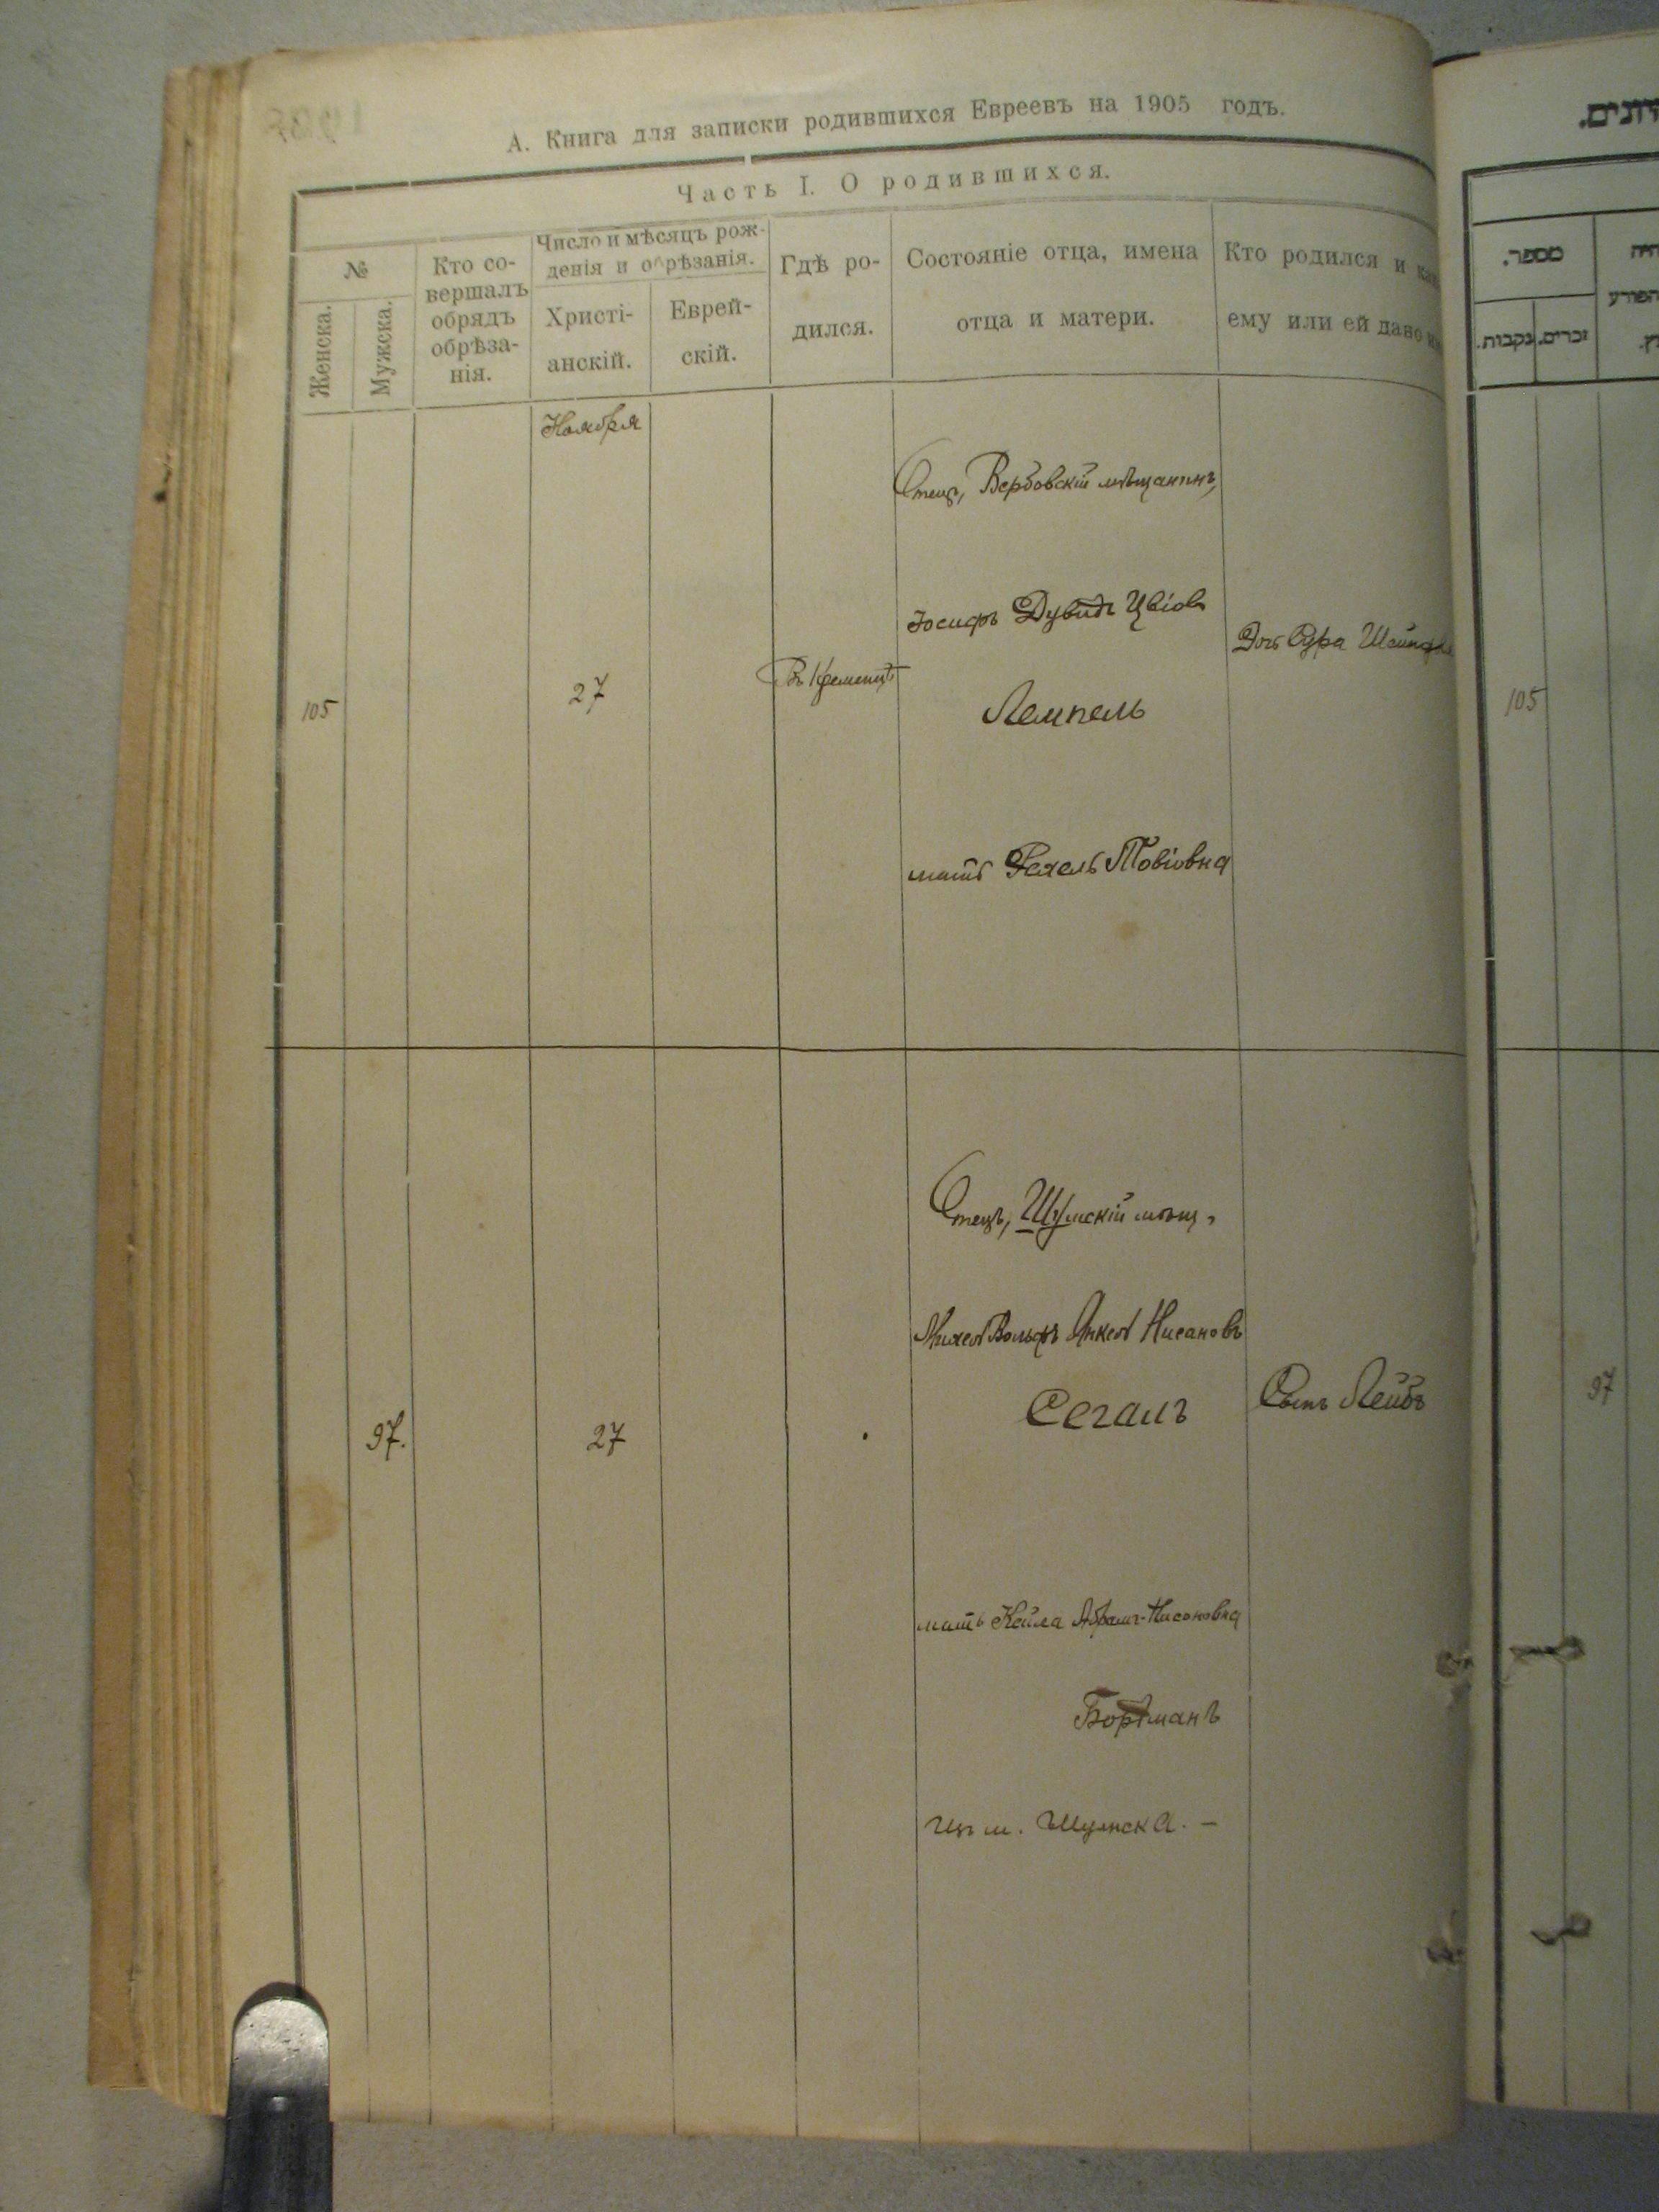 А. Книга для записки родившихся Евреевъ на 1905 годъ.
Часть I. О родившихся.
№
Женска.
Мужска.
Кто со-
вершалъ
обрядъ
обрѣза-
нія.
Число и мѣсяцъ рож-
денія и обрѣзанія.
Христі-
анскій.
Еврей-
скій.
Гдѣ ро-
дился.
Состояніе отца, имена
отца и матери.
Кто родился и
ему или ей дано
Ноября
105
27
Въ Кременцѣ
Отецъ, Вербовскій мѣщанинъ,
Іосифъ Дувидъ Цвіовъ
Лемпель
мать Рехель Товіовна
Дочь Сура
97.
27
Отецъ, Шумскій мѣщ.
Михель Вольфъ Янкель Нисановъ
Сегалъ
мать Кейла Абрамъ-Нисановна
Бортманъ
изъ м. Шумска. -
Сынъ Лейбъ
מספר.
זכרים.
נקבות.
105
97